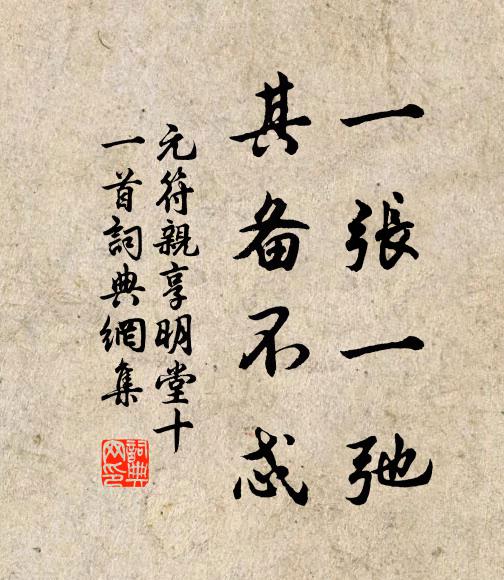 一張一弛
其备不忒
元符親享明堂十
一首詞典網集
詞典
网印